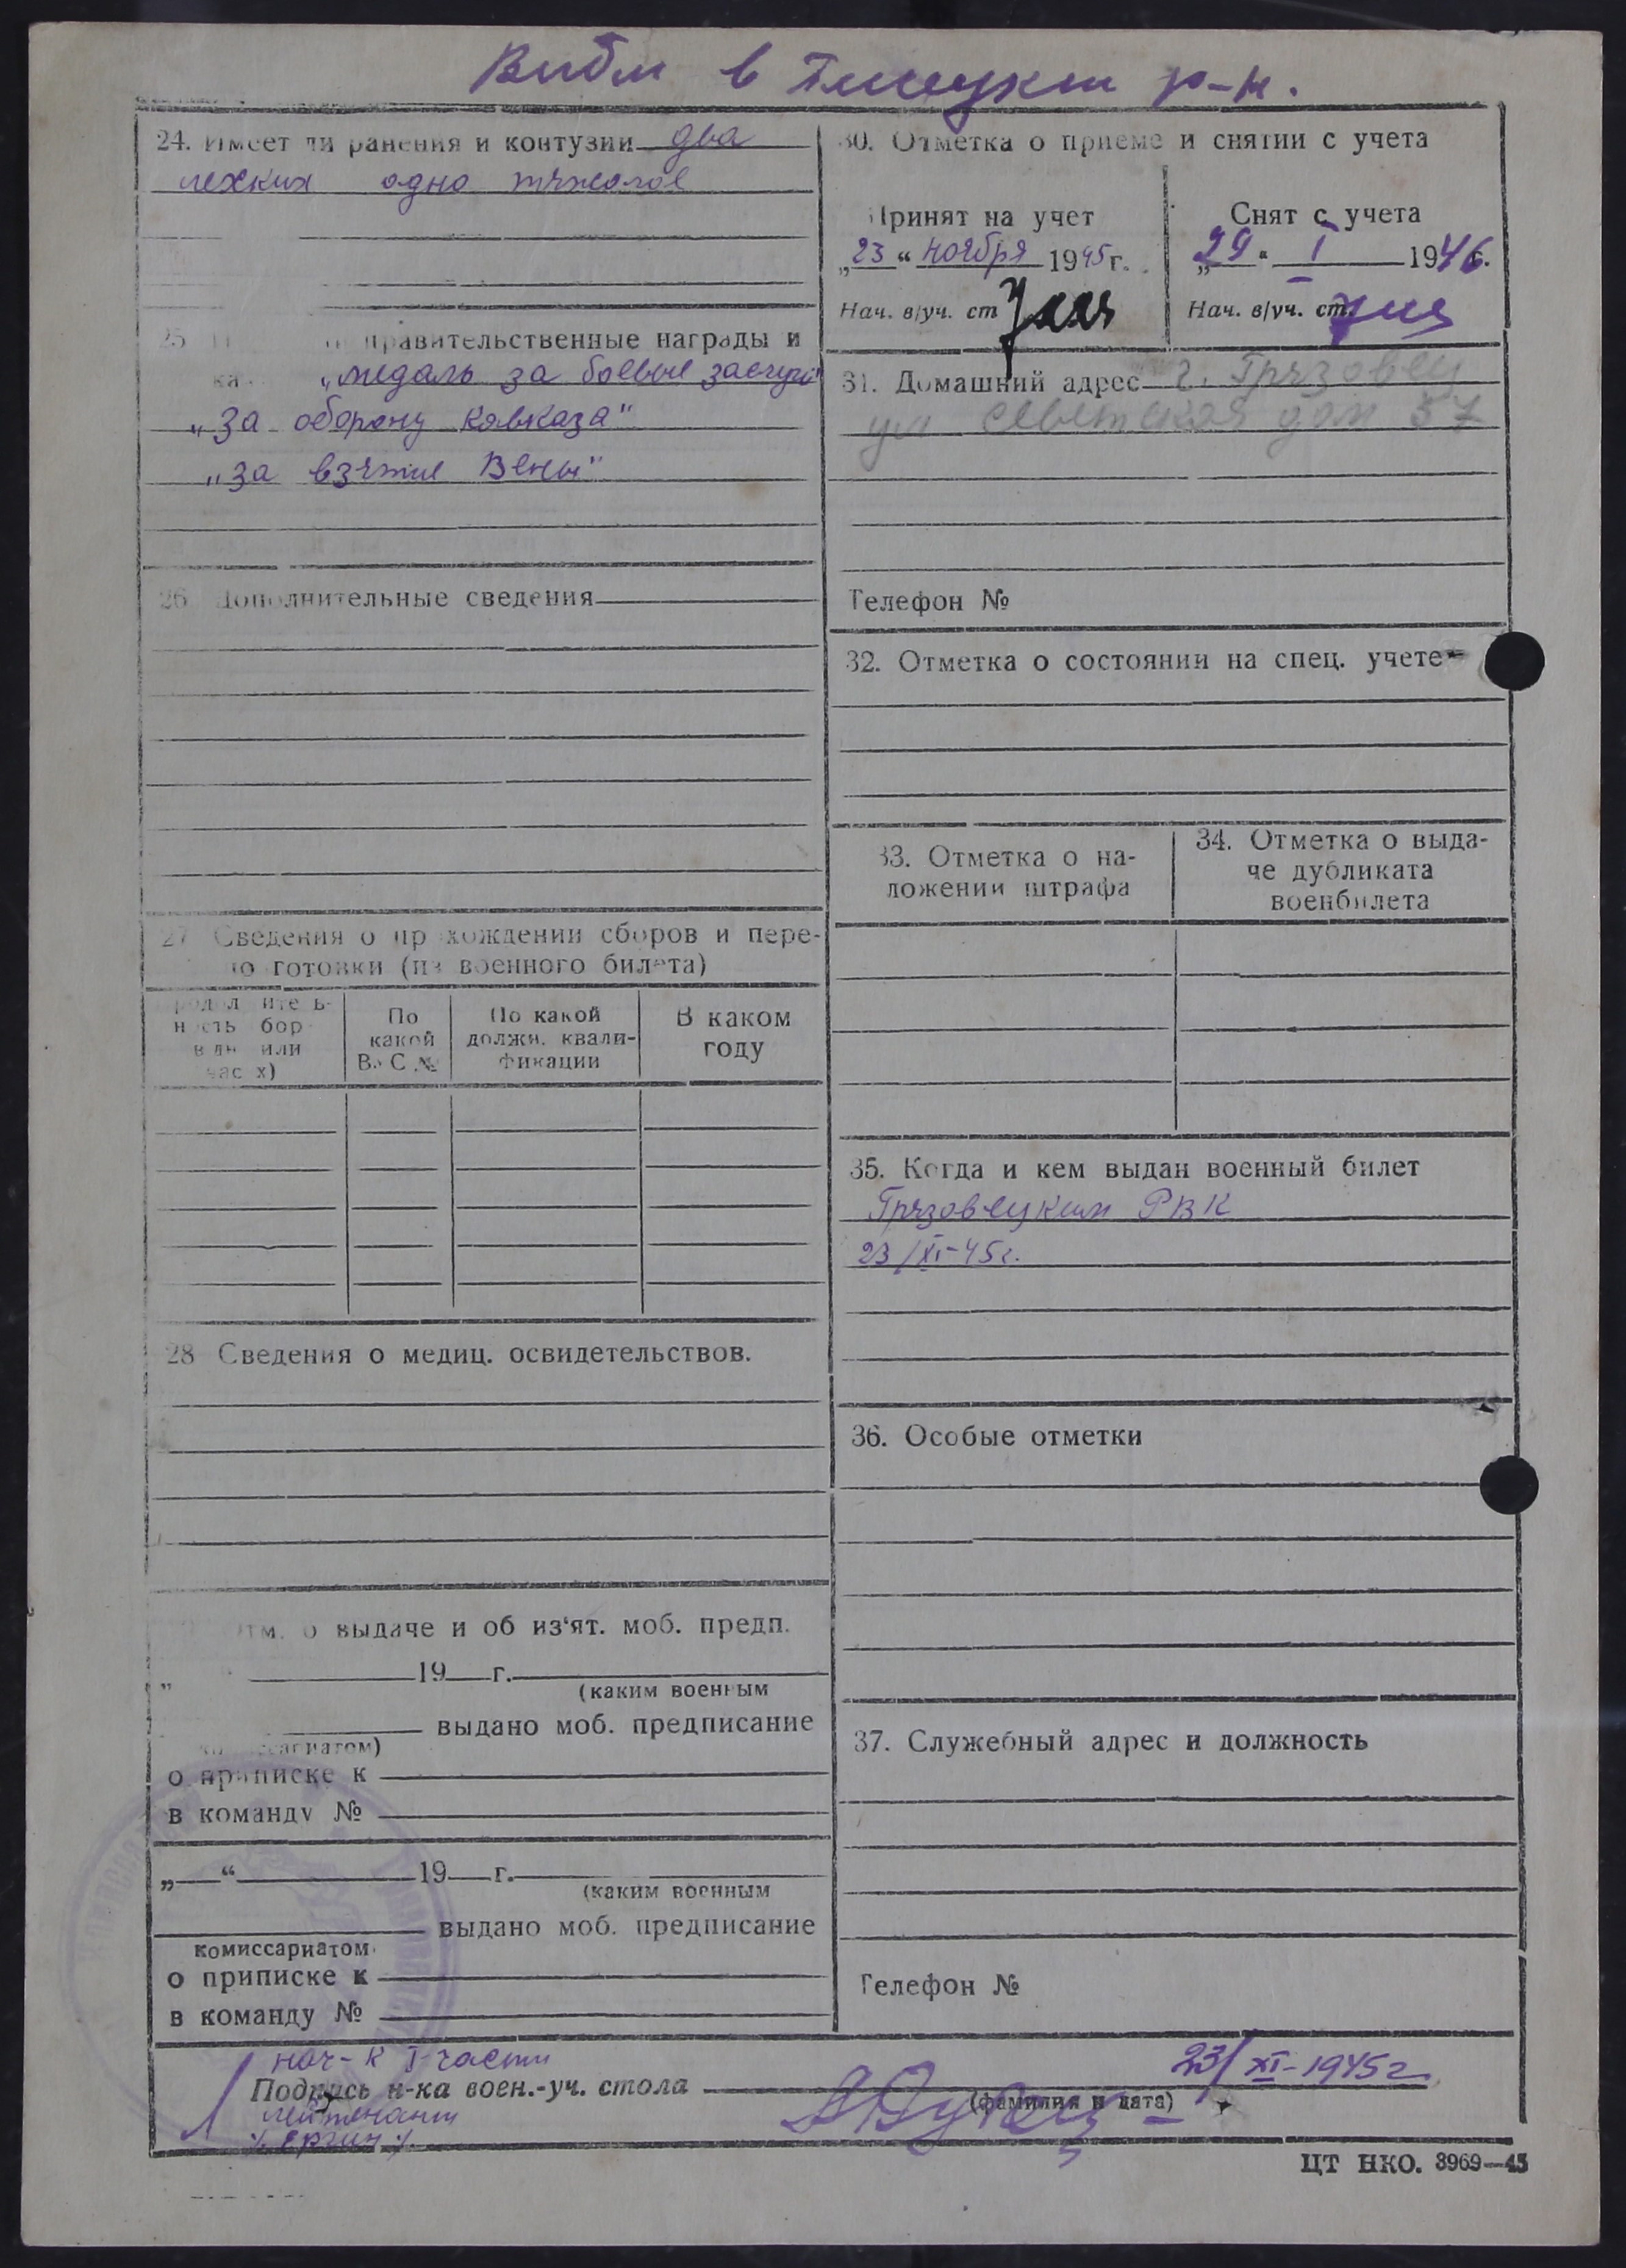 в р-н.
24. Имеет ли ранения и контузии два
легких одно тяжолое
правительственные награды и
"медаль за боевые заслуги"
"За оборону Кавказа"
"за взятие Вены"
26 Дополнительные сведения
27 Сведения о прохождении сборов и пере-
готовки (из военного билета)
По
какой
ВУС №
По какой
должн. квали-
фикации
В каком
году
28 Сведения о медиц. освидетельствов.
Отм. о выдаче и об из'ят. моб. предп.
" 19 г.
(каким военным
выдано моб. предписание
комиссариатом)
о приписке к
в команду №
„ “ 19 г.
(каким военным
выдано моб. предписание
комиссариатом
о приписке к
в команду №
30. Отметка о приеме и снятии с учета
Принят на учет
„23“ ноября 1945 г.
Нач. в/уч. ст
Снят с учета
„29“ I 1946 г.
Нач. в/уч. ст.
31. Домашний адрес г. Грязовец
ул Советская дом 57
Телефон №
32. Отметка о состоянии на спец. учете
33. Отметка о на-
ложении штрафа
34. Отметка о выда-
че дубликата
военбилета
35. Когда и кем выдан военный билет
Грязовецким РВК
23/XI-45г.
36. Особые отметки
37. Служебный адрес и должность
Телефон №
нач-к I части
23/XI-1945г.
Подпись н-ка воен.-уч. стола
(фамилия и дата)
лейтенант
ЦТ НКО. 3969—45